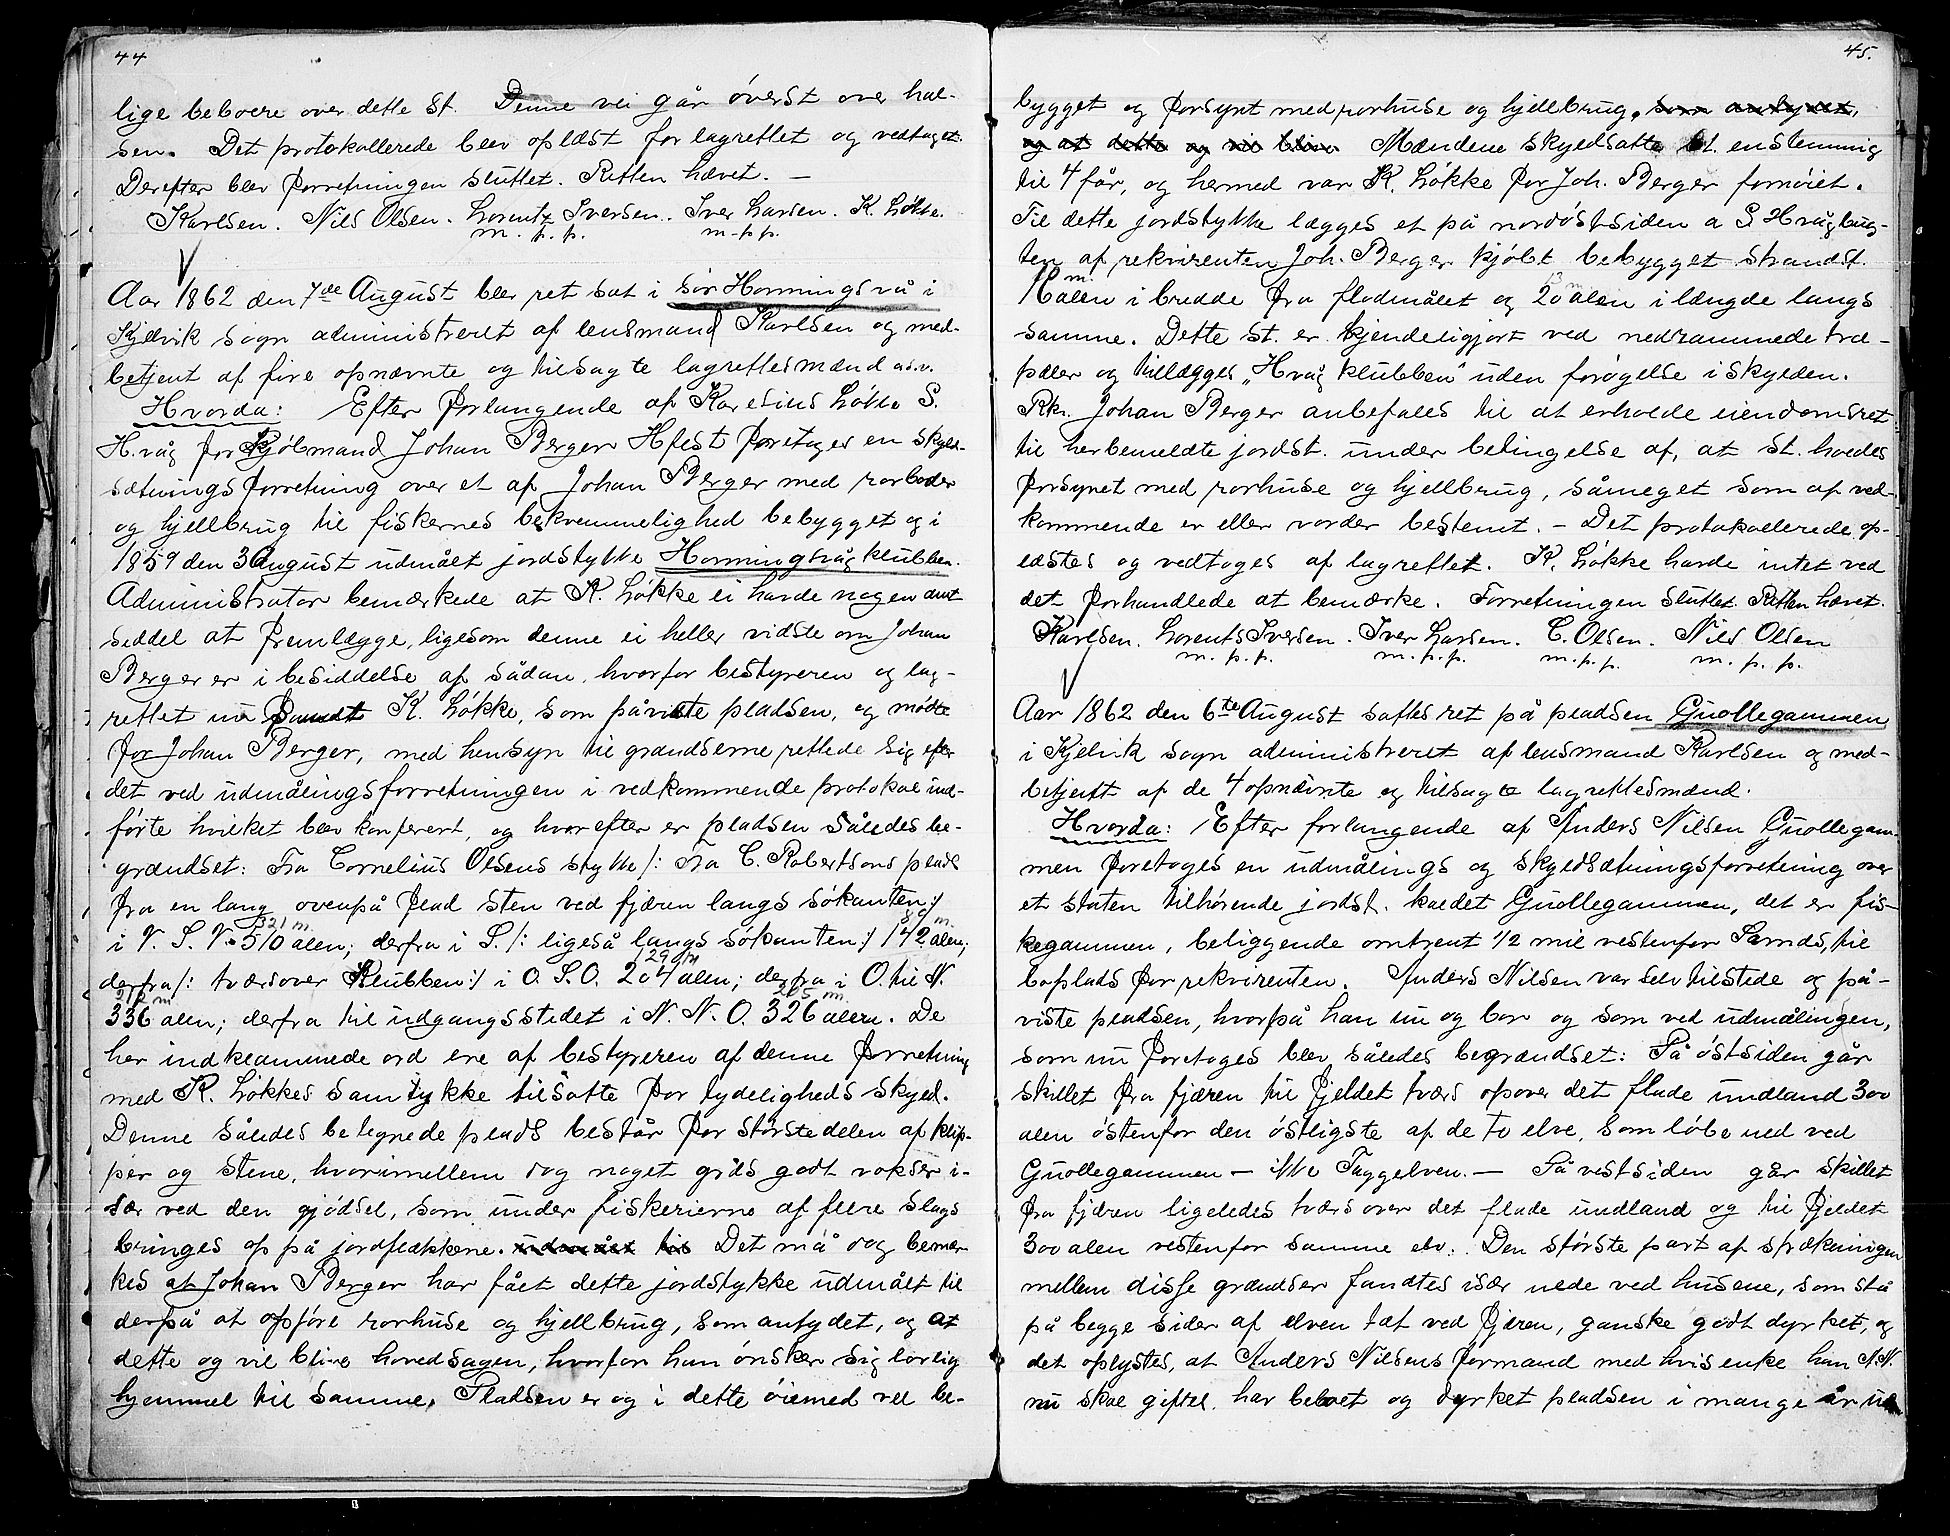 44
lige beboere over dette St. Denne vei går överst over hal-
sen. Det protokollerede blev oplæst for lagrettet og vedtaget.
Derefter blev Forretningen sluttet. Retten hævet. —
Karlsen. Nils Olsen. Lorentz Iversen. Iver Larsen. K. Lökke.
m. p. p. m. p. p.
Aar 1862 den 7de August blev ret sat i sör Honningsvå i
Kjelvik sogn administreret af lensmand Karlsen og med-
betjent af fire opnævnte og tilsagte lagrettesmænd as.v.
Hvorda: Efter Forlangende af Karesius Lökke S.
H.våg for Kjöbmand Johan Berger Hfest foretages en skyld-
sætningsforretning over et af Johan Berger med rorboder
og hjellbrug til fiskernes bekvemmelighed bebygget og i
1859 den 30 August udmålt jordstykke Honningsvåg klubben.
Administrator bemærkede at K. Lökke ei havde nogen amt
seddel at fremlægge, ligesom denne ei heller vidste om Johan
Berger er i besiddelse af sådan, hvorfor bestyreren og lag-
rettet nu K. Lökke, som påviste pladsen, og mödte
for Johan Berger, med hensyn til grændserne rettede sig efter
det ved udmålingsforretningen i vedkommende protokol ind-
förte hvilket blev konfereret, og hvorefter er pladsen således be-
grændset: Fra Cornelius Olsens stykke /: Fra C. Robertsens plads
fra en lang ovenpå flad sten ved fjæren langs sökanten :/
321 m. 89 m.
i V. S. V. 510 alen; derfra i S. /: ligeså langs sökanten :/ 142 alen;
129 m
derfra /: tværsover Klubben :/ i O. S. O. 204 alen; derfra i O. til N.
212 m 205 m.
336 alen; derfra til udgangsstedet i N. N. O. 326 alen. De
her indklammede ord ere af bestyreren af denne forretning
med K. Lökkes samtykke tilsatte for tydeligheds skyld.
Denne således betegnede plads består for störstedelen af klip-
per og stene, hvorimellem dog noget græs godt vokser i-
sær ved den gjödsel, som under fiskerierne af flere slags
bringes op på jordflækkene. udmålt til Det må dog bemær-
kes at Johan Berger har fået dette jordstykke udmålt til
derpå at opföre rorhuse og hjellbrug, som antydet, og at
dette og vil blive hovedsagen, hvorfor han önsker sig lovlig
hjemmel til samme. Pladsen er og i dette öiemed vel be-
45.
bygget og forsynt med rorhuse og hjellbrug, som antydet,
og at dette og vil blive Mændene skyldsatte St. enstemmig
til 4 får, og hermed var K. Lökke for Joh. Berger fornöiet.
Til dette jordstykke lægges et på nordöstsiden a S Hvåg bug-
ten af rekvirenten Joh. Berger kjöbt bebygget strandst.
10 m. 13 m
16 alen i bredde fra flodmålet og 20 alen i længde langs
samme. Dette St. er kjendeligjort ved nedrammede træ-
pæler og tillægges „Hvåg klubben" uden forögelse i skylden.
Rkr. Johan Berger anbefales til at erholde eiendomsret
til herbemeldte jordst. under betingelse af, at St. holdes
forsynet med rorhuse og hjellbrug, såmeget som af ved-
kommende er eller vorder bestemt. — Det protokollerede op-
læstes og vedtoges af lagrettet. K. Lökke havde intet ved
det forhandlede at bemærke. Forretningen sluttet. Retten hævet.
Karlsen. Lorents Iversen. Iver Larsen. C. Olsen. Nils Olsen
m. p. p. m. p. p. m. p. p. m. p. p.
Aar 1862 den 6te August sattes ret på pladsen Guollegammen
i Kjelvik sogn administreret af lensmand Karlsen og med-
betjent af de 4 opnævnte og tilsagte lagrettesmænd.
Hvorda: Efter forlangende af Anders Nilsen Guollegam-
men foretoges en udmålings og skyldsætningsforretning over
et staten tilhörende jordst. kaldet Guollegammen, det er fis-
kegammen, beliggende omtrent 1/2 mil vestenfor Sarnæs, til
boplads for rekvirenten. Anders Nilsen var selv tilstede og på-
viste pladsen, hvorpå han nu og bor og som ved udmålingen,
som nu foretoges blev således begrændset: På östsiden går
skillet fra fjæren til fjeldet tværs opover det flade undland 300
alen östenfor den östligste af de to elve, som löbe ned ved
Guollegammen — ikke Taggelven. — På vestsiden går skillet
fra fjæren ligeledes tværsover det flade undland og til fjeldet
300 alen vestenfor samme elv. Den störste part af strækningen
mellem disse grændser fandtes især nede ved husene, som stå
på begge sider af elven tæt ved fjæren, ganske godt dyrket, og
det oplystes, at Anders Nilsens formand med hvis enke han A.N.
nu skal giftes, har beboet og dyrket pladsen i mange år